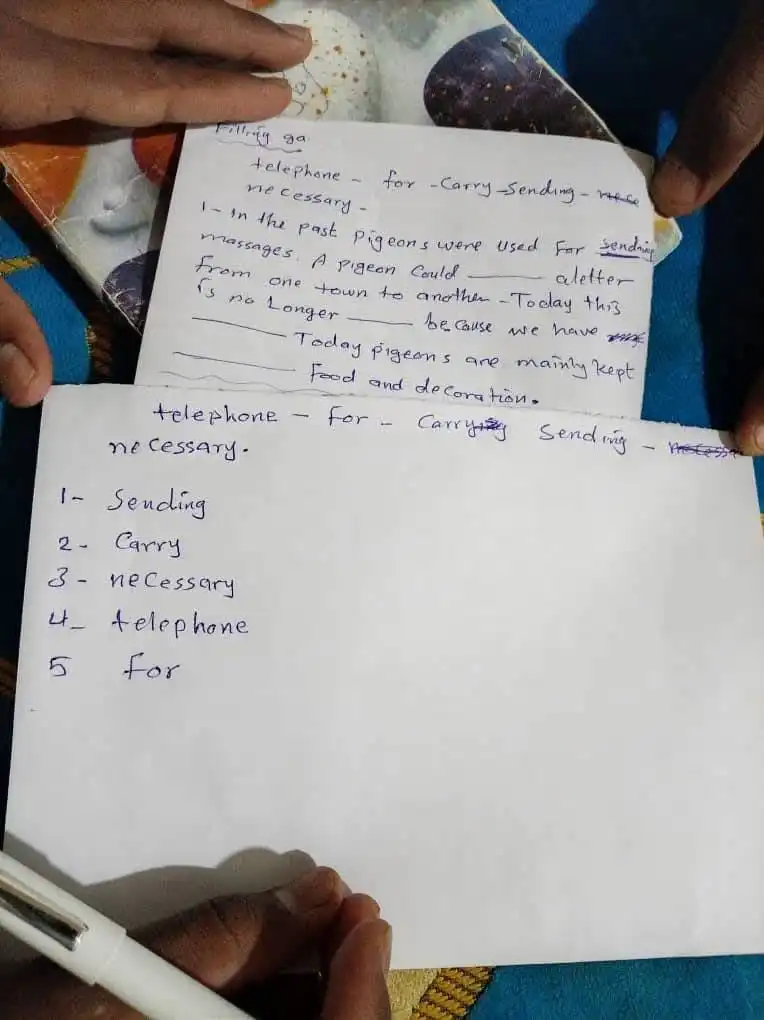 Filling ga
telephone - for - Carry - Sending -
necessary -
1- In the past pigeons were used For sending
massages. A pigeon Could ______ aletter
from one town to another - Today this
is no Longer ______ because we have
______ Today pigeons are mainly kept
______ Food and decoration.
telephone - for - Carry Sending -
necessary.
1- Sending
2- Carry
3- necessary
4- telephone
5 for